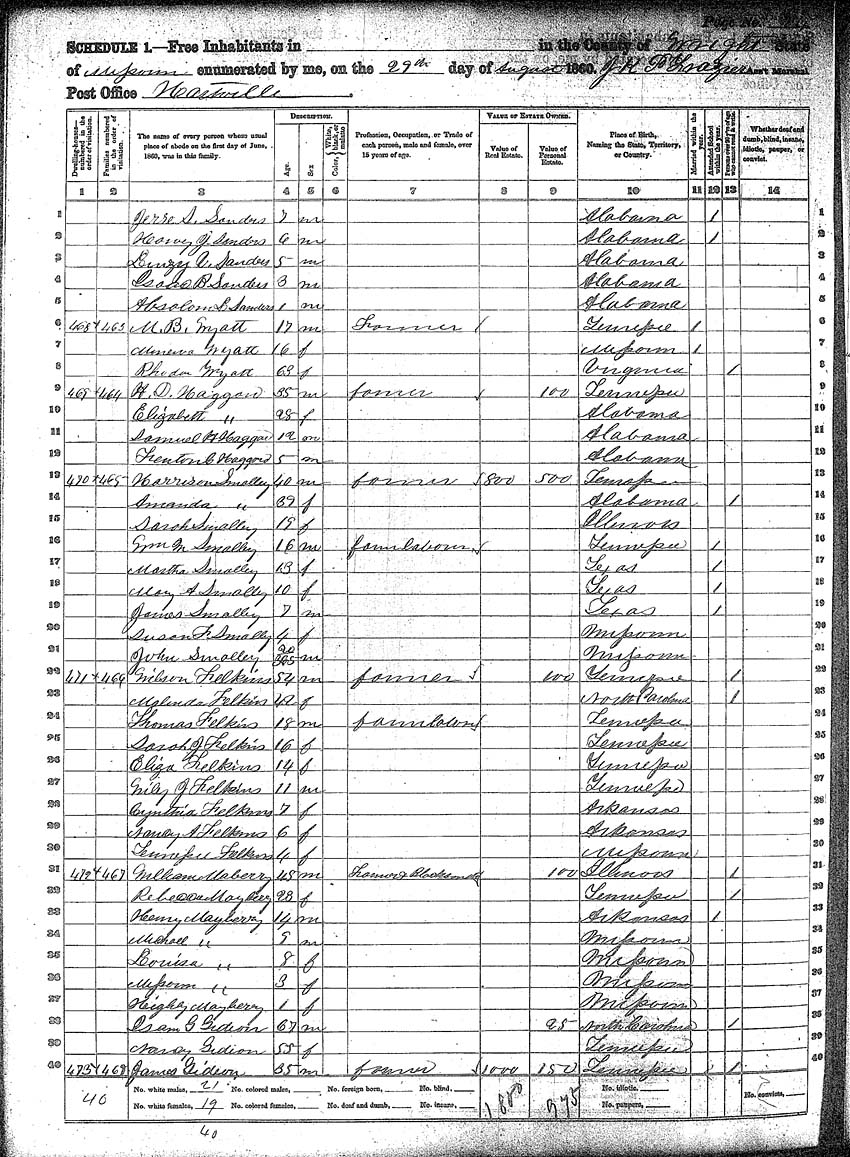 Page No.
SCHEDULE 1.—Free Inhabitants in in the County of Wright State
of Missouri enumerated by me, on the 29th day of August 1860. J. H. P. Frazier Ass't Marshal
Post Office Hartville
Dwelling-house—numbered in the order of visitation.
Families numbered in the order of visitation.
The name of every person whose usual place of abode on the first day of June, 1860, was in this family.
DESCRIPTION.
Age.
Sex
Color, White, black, or mulatto
Profession, Occupation, or Trade of each person, male and female, over 15 years of age.
VALUE OF ESTATE OWNED.
Value of Real Estate.
Value of Personal Estate.
Place of Birth, Naming the State, Territory, or Country.
Married within the year.
Attended School within the year.
Persons over 20 y'rs of age who cannot read & write.
Whether deaf and dumb, blind, insane, idiotic, pauper, or convict.
1 2 3 4 5 6 7 8 9 10 11 12 13 14
1 Jesse S. Sanders 7 m Alabama 1 1
2 Harvy J Sanders 6 m Alabama 1 2
3 Sanders 5 m Alabama 3
4 Isaac B Sanders 3 m Alabama 4
5 Absolom L Sanders 1 m Alabama 5
6 468 463 M. B. Wyatt 17 m Farmer Tennessee 1 6
7 Minerva Wyatt 16 f Missouri 1 7
8 Rhoda Wyatt 63 f Virginia 1 8
9 469 464 H. D. Haggard 35 m farmer 100 Tennessee 9
10 Elizabeth " 28 f Alabama 10
11 Samuel H Haggard 12 m Alabama 11
12 Fenton C Haggard 5 m Alabama 12
13 470 465 Harrison Smalley 40 m farmer $800 500 Tennessee 13
14 Amanda " 39 f Alabama 1 14
15 Sarah Smalley 19 f Illinois 15
16 Wm M Smalley 16 m farm labourer Tennessee 1 16
17 Martha Smalley 13 f Texas 1 17
18 Mary A Smalley 10 f Texas 1 18
19 James Smalley 7 m Texas 1 19
20 Susan F Smalley 4 f Missouri 20
21 John Smalley 20/365 m Missouri 21
22 471 466 Wilson Felkins 54 m farmer 100 Tennessee 1 22
23 Malinda Felkins 42 f North Carolina 1 23
24 Thomas Felkins 18 m farm labour Tennessee 24
25 Sarah J Felkins 16 f Tennessee 25
26 Eliza Felkins 14 f Tennessee 26
27 Wily J Felkins 11 m Tennessee 27
28 Cynthia Felkins 7 f Arkansas 28
29 Nancy A Felkins 6 f Arkansas 29
30 Tennessee Felkins 4 f Missouri 30
31 472 467 William Maberry 45 m Farmer & Blacksmith 100 Illinois 1 31
32 Rebecca Mayberry 28 f Tennessee 1 32
33 Henry Mayberry 14 m Arkansas 1 33
34 Michael " 9 m Missouri 34
35 Louisa " 8 f Missouri 35
36 Missouri " 3 f Missouri 36
37 Mayberry 1 f Missouri 37
38 Isam G Gideon 67 m 25 North Carolina 1 38
39 Nancy Gideon 55 f Tennessee 39
40 473 468 James Gideon 35 m farmer $1000 150 Tennessee 1 40
40 No. white males, 21 No. colored males, No. foreign born, No. blind, No. idiotic,
No. white females, 19 No. colored females, No. deaf and dumb, No. insane, 1,800 975 No. paupers, No. convicts,
40